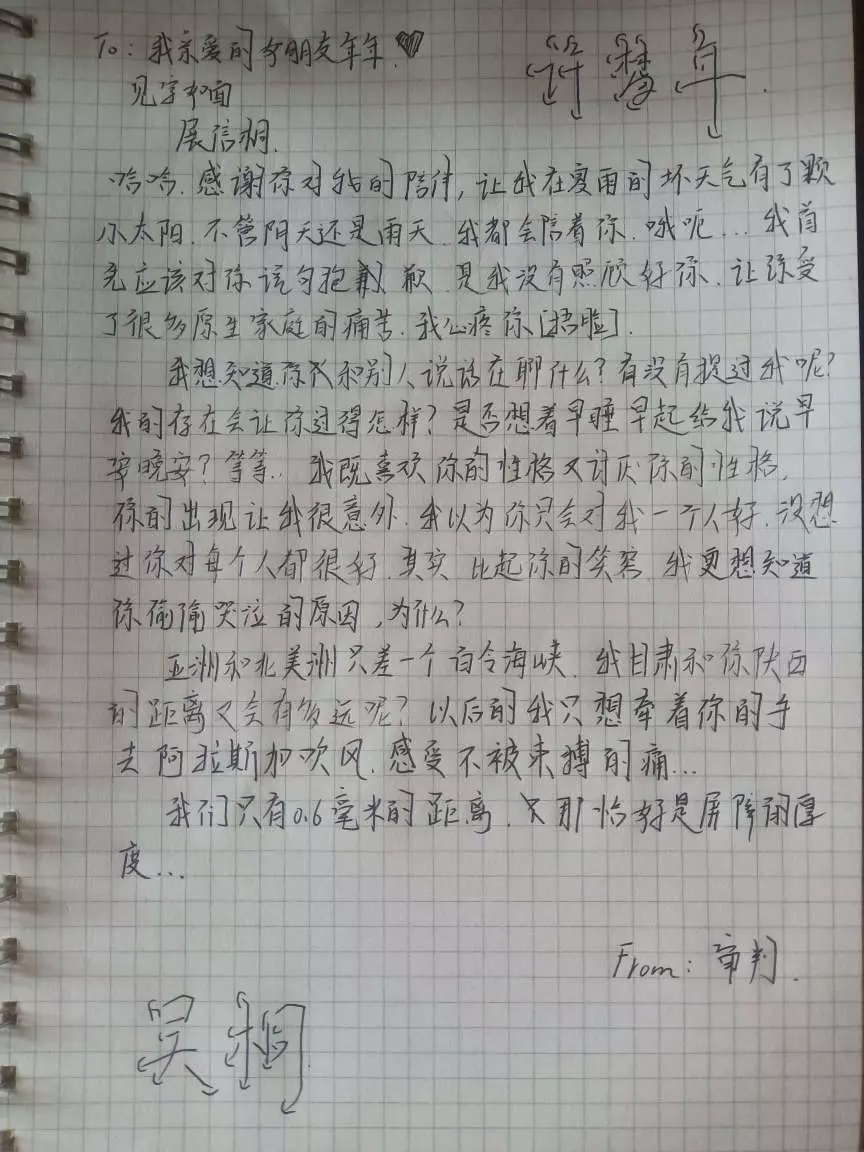 To: 我亲爱的女朋友年年.
许馨年.
见字如面
展信桐.
哈哈.感谢你对我的陪伴,让我在夏雨的坏天气有了颗
小太阳.不管阴天还是雨天.我都会陪着你.哦呃...我首
先应该对你说句抱歉 歉.是我没有照顾好你.让你受
了很多原生家庭的痛苦.我心疼你[捂脸].
我想知道你和别人说话在聊什么?有没有提过我呢?
我的存在会让你过得怎样?是否想着早睡早起给我说早
安晚安?等等..我既喜欢你的性格又讨厌你的性格.
你的出现让我很意外.我以为你只会对我一个人好.没想
过你对每个人都很好.其实 比起你的笑容 我更想知道
你偷偷哭泣的原因,为什么?
亚洲和北美洲只差一个白令海峡.我甘肃和你陕西
的距离又会有多远呢?以后的我只想牵着你的手
去阿拉斯加吹风.感受不被束搏的痛...
我们只有0.6毫米的距离.只那恰好是屏障的厚
度...
From: 审判.
吴桐